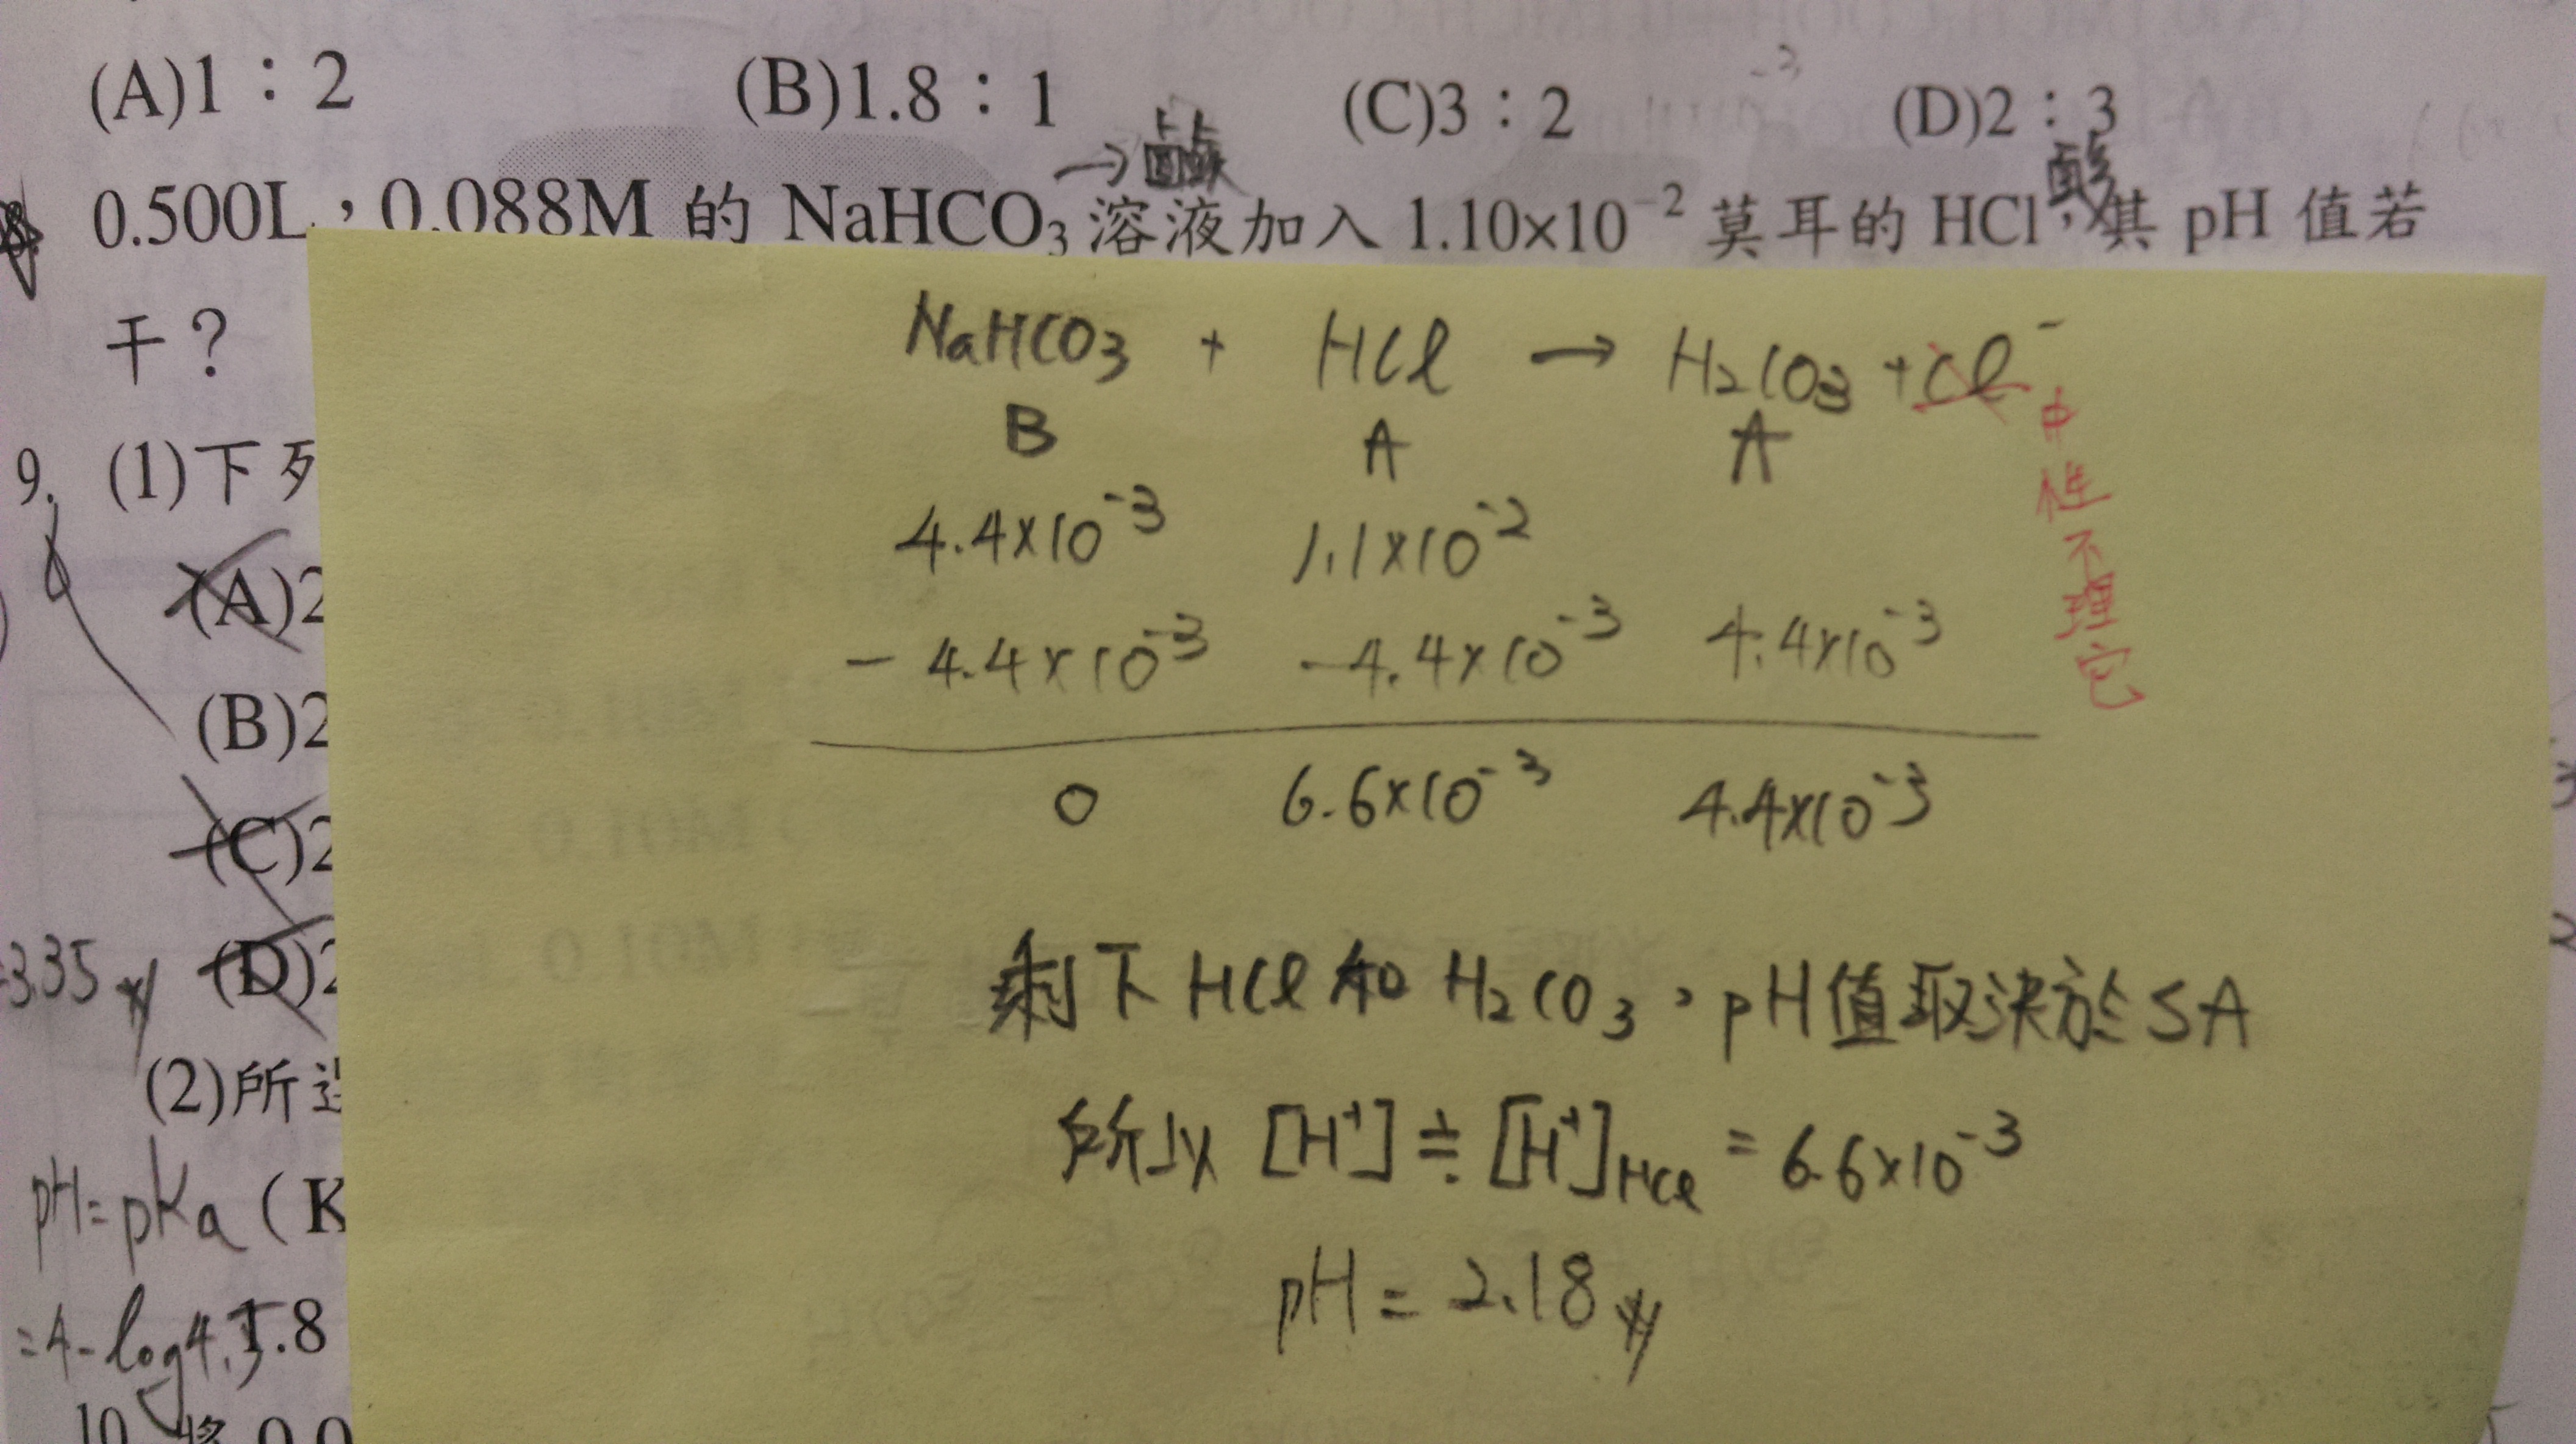 (A)1：2 (B)1.8：1 (C)3：2 (D)2：3
→鹼 酸
0.500L，0.088M 的 NaHCO₃ 溶液加入 1.10×10⁻² 莫耳的 HCl，其 pH 值若
干？
NaHCO₃ + HCl → H₂CO₃ + Cl⁻
B A A
中性不理它
4.4×10⁻³ 1.1×10⁻²
-4.4×10⁻³ -4.4×10⁻³ 4.4×10⁻³
0 6.6×10⁻³ 4.4×10⁻³
剩下 HCl 和 H₂CO₃，pH值取決於 SA
所以 [H⁺] ≒ [H⁺]HCl = 6.6×10⁻³
pH = 2.18
9. (1)下列
(A)2
(B)2
(C)2
(D)2
3.35
(2)所
pH=pKa (K
=4-log4.5
1.8
10. 將 0.0